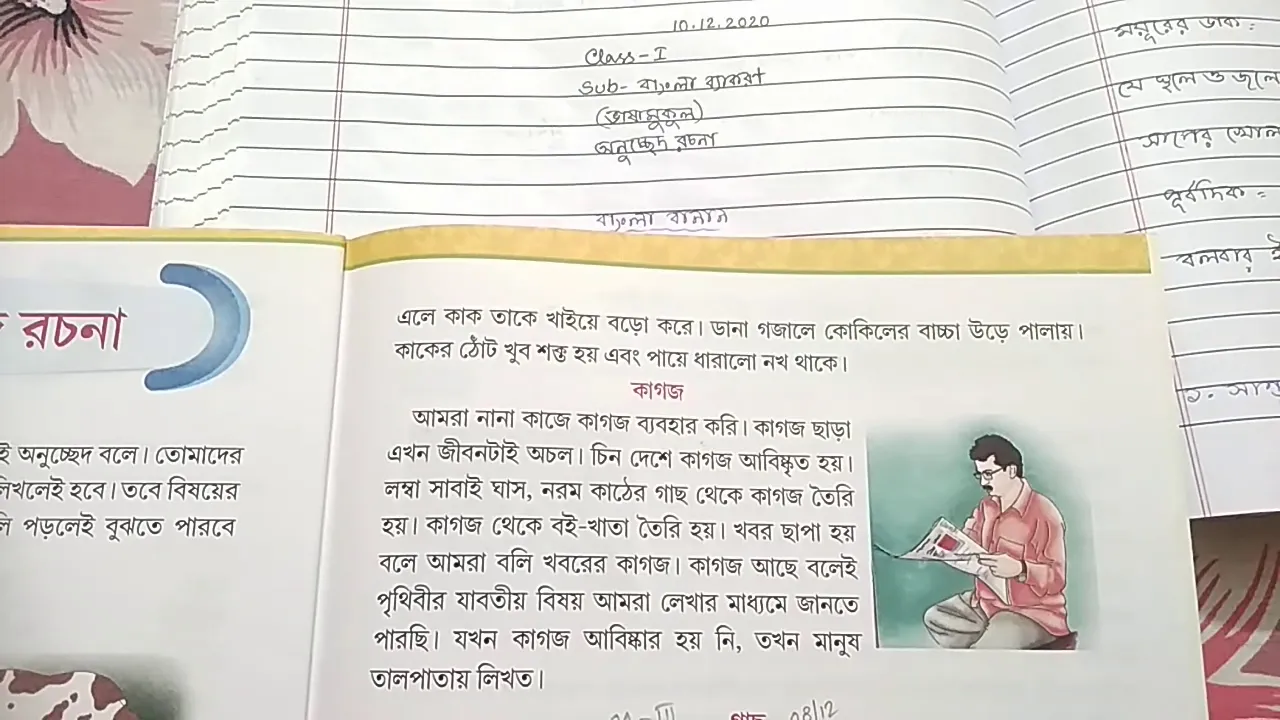 10.12.2020
Class - I
Sub- বাংলা ব্যাকরণ
(ভাষামুকুল)
অনুচ্ছেদ রচনা
বাংলা বানান
ময়ূরের ডাক :
যে স্থলে ও জলে
সাপের
পূর্বদিক =
বলবার
রচনা
ই অনুচ্ছেদ বলে। তোমাদের
লিখলেই হবে। তবে বিষয়ের
পড়লেই বুঝতে পারবে
এলে কাক তাকে খাইয়ে বড়ো করে। ডানা গজালে কোকিলের বাচ্চা উড়ে পালায়।
কাকের ঠোঁট খুব শক্ত হয় এবং পায়ে ধারালো নখ থাকে।
কাগজ
আমরা নানা কাজে কাগজ ব্যবহার করি। কাগজ ছাড়া
এখন জীবনটাই অচল। চিন দেশে কাগজ আবিষ্কৃত হয়।
লম্বা সাবাই ঘাস, নরম কাঠের গাছ থেকে কাগজ তৈরি
হয়। কাগজ থেকে বই-খাতা তৈরি হয়। খবর ছাপা হয়
বলে আমরা বলি খবরের কাগজ। কাগজ আছে বলেই
পৃথিবীর যাবতীয় বিষয় আমরা লেখার মাধ্যমে জানতে
পারছি। যখন কাগজ আবিষ্কার হয় নি, তখন মানুষ
তালপাতায় লিখত।
গাছ 08/12